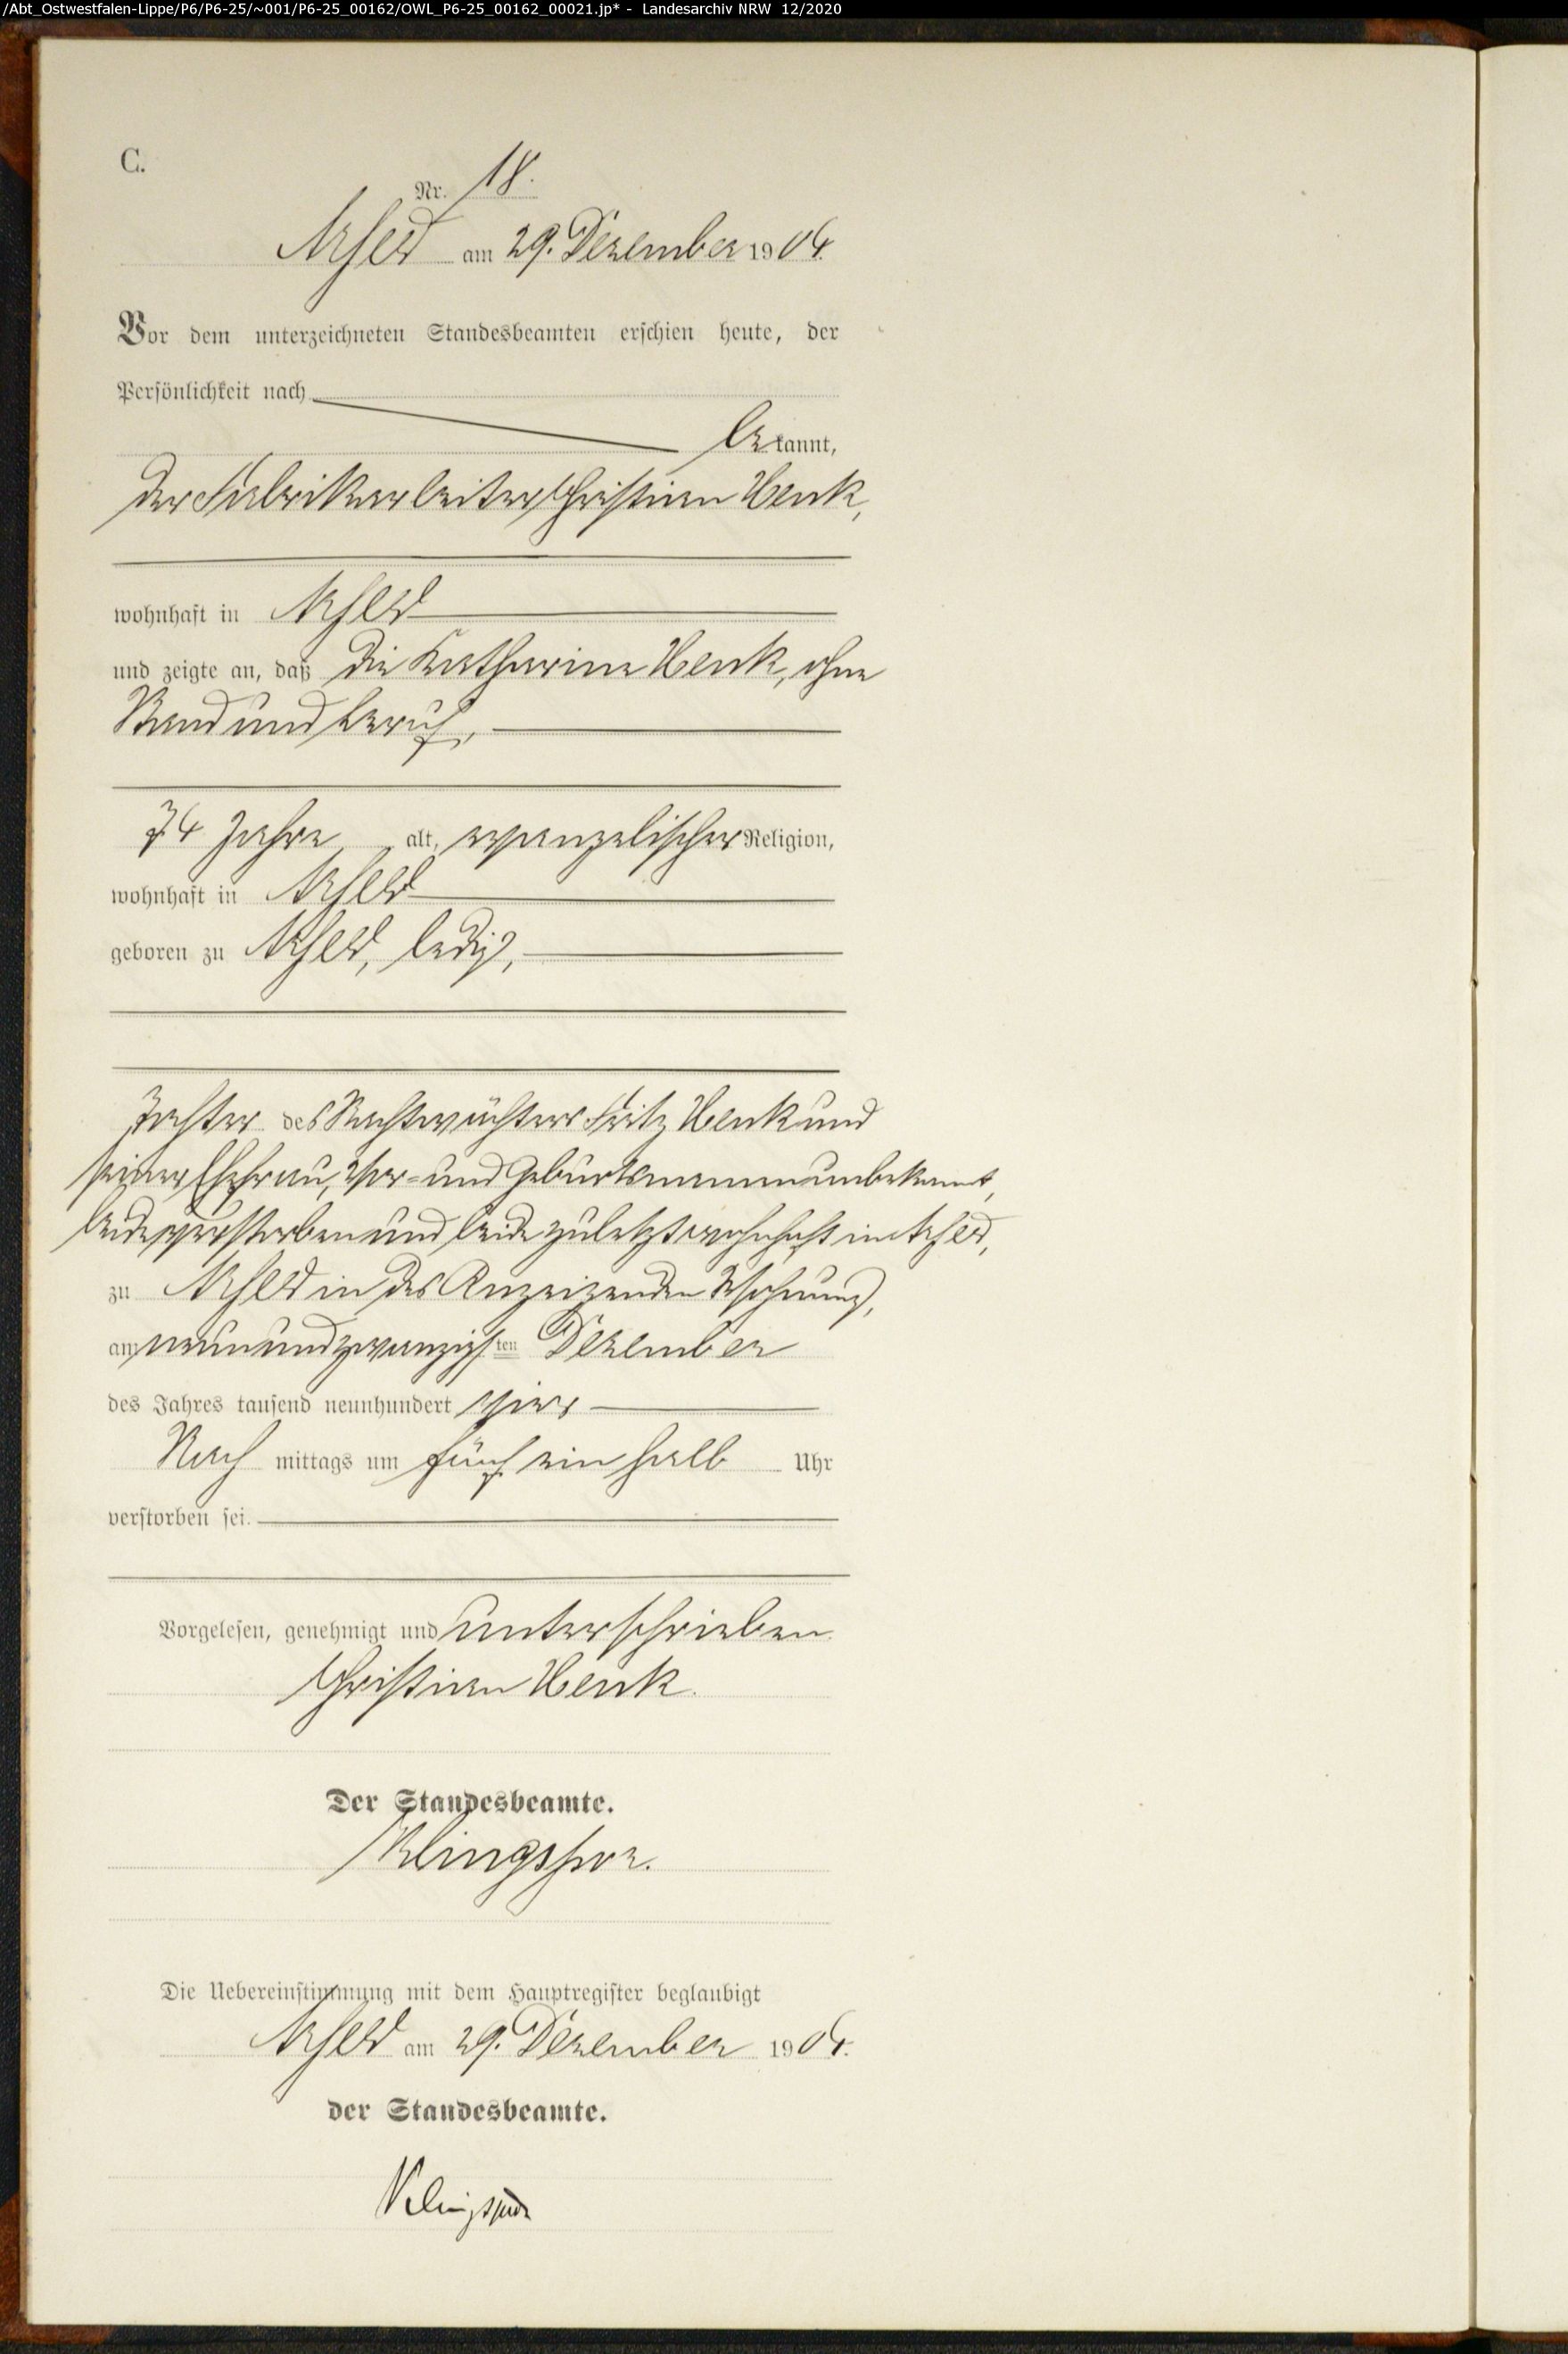 /Abt_Ostwestfalen-Lippe/P6/P6-25/~001/P6-25_00162/OWL_P6-25_00162_00021.jp* - Landesarchiv NRW 12/2020
C.
Nr. 18.
Arfeld am 29. Dezember 1904.
Vor dem unterzeichneten Standesbeamten erschien heute, der
Persönlichkeit nach
bekannt,
der Fabrikarbeiter Christian Henk,
wohnhaft in Arfeld
und zeigte an, daß die Katharine Henk, ohne
Stand und Beruf,
74 Jahre alt, evangelischer Religion,
wohnhaft in Arfeld
geboren zu Arfeld, ledig,
Tochter des Nachtwächters Fritz Henk und
seiner Ehefrau, Vor- und Geburtsname unbekannt,
beide verstorben und beide zuletzt wohnhaft in Arfeld,
zu Arfeld in des Anzeigenden Wohnung,
am neunundzwanzigsten Dezember
des Jahres tausend neunhundert vier
Nach mittags um fünf ein halb Uhr
verstorben sei.
Vorgelesen, genehmigt und unterschrieben
Christian Henk.
Der Standesbeamte.
Klingspor.
Die Uebereinstimmung mit dem Hauptregister beglaubigt
Arfeld am 29. Dezember 1904.
der Standesbeamte.
Klingspor